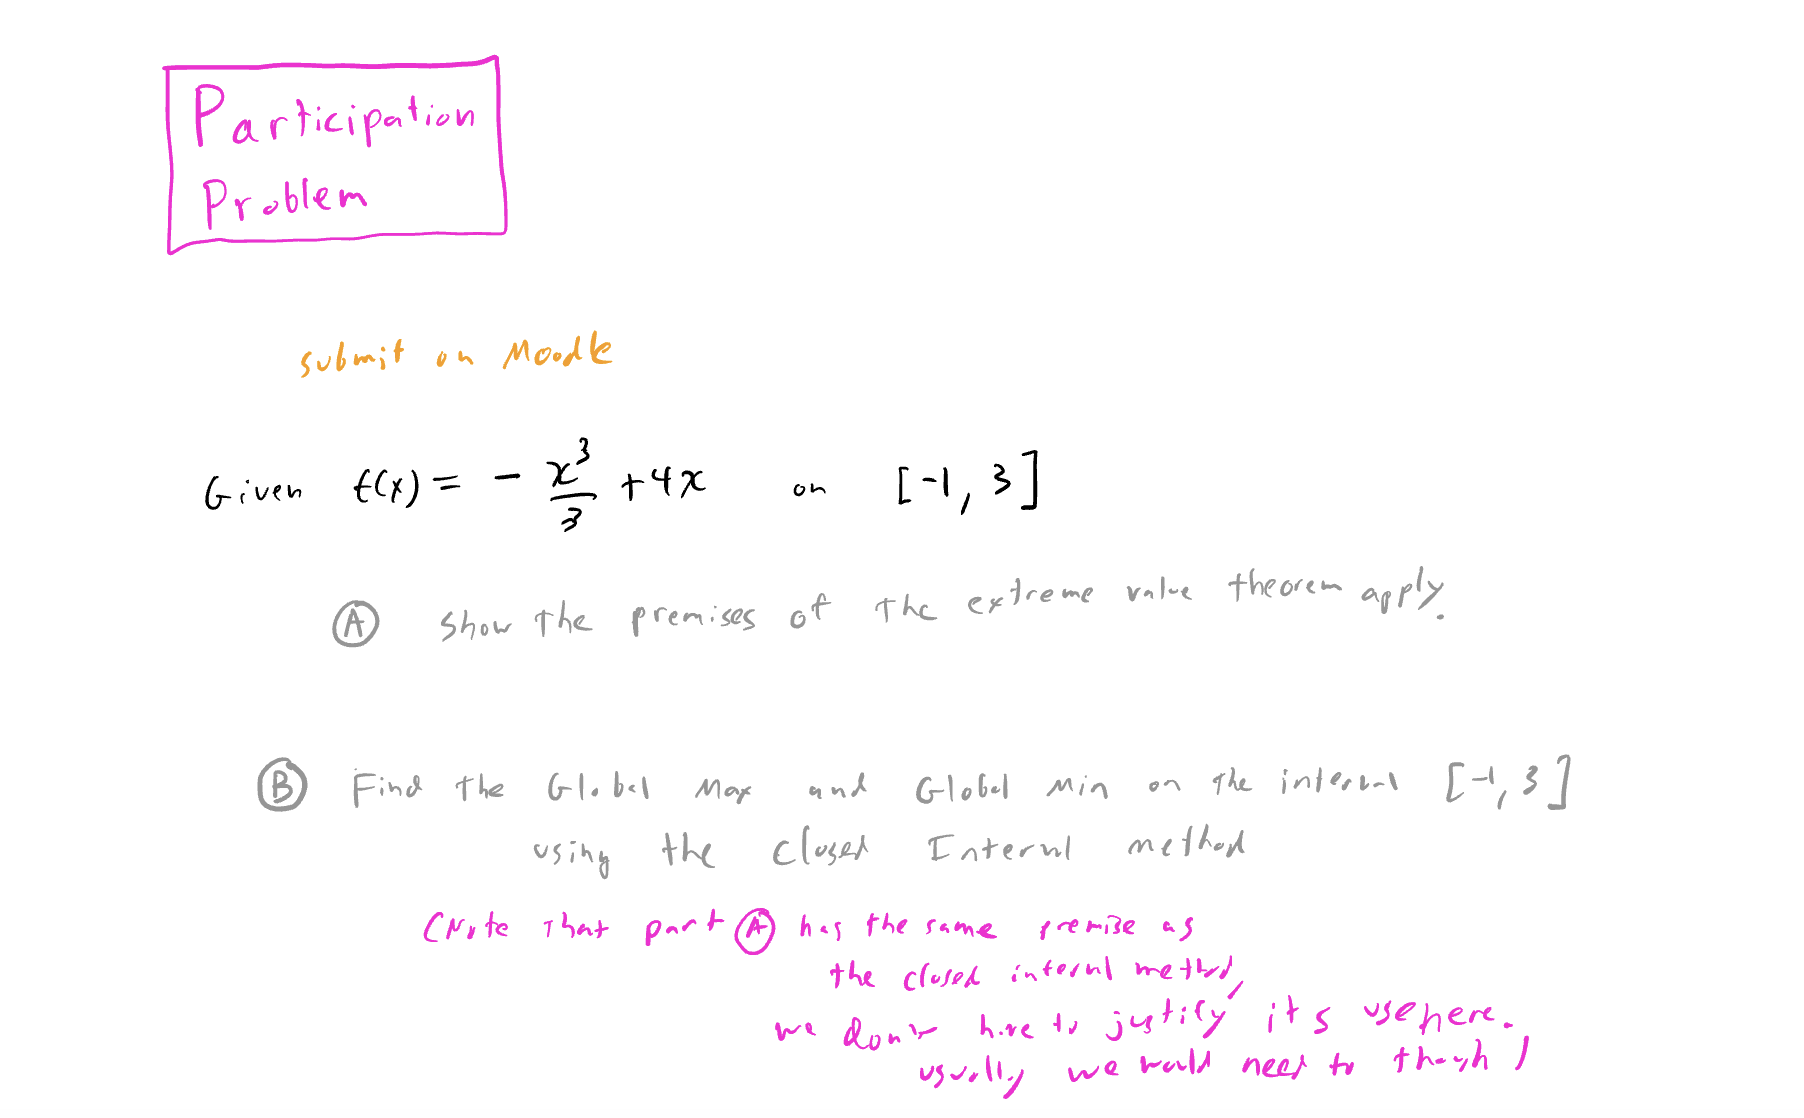 Participation
Problem
submit on Moodle
Given f(x) = - x^3/3 + 4x on [-1, 3]
(A) Show the premises of the extreme value theorem apply.
(B) Find the Global Max and Global Min on the interval [-1, 3]
using the Closed Interval method
(Note that part (A) has the same premise as
the closed interval method,
we don't have to justify it's use here.
usually we would need to though)